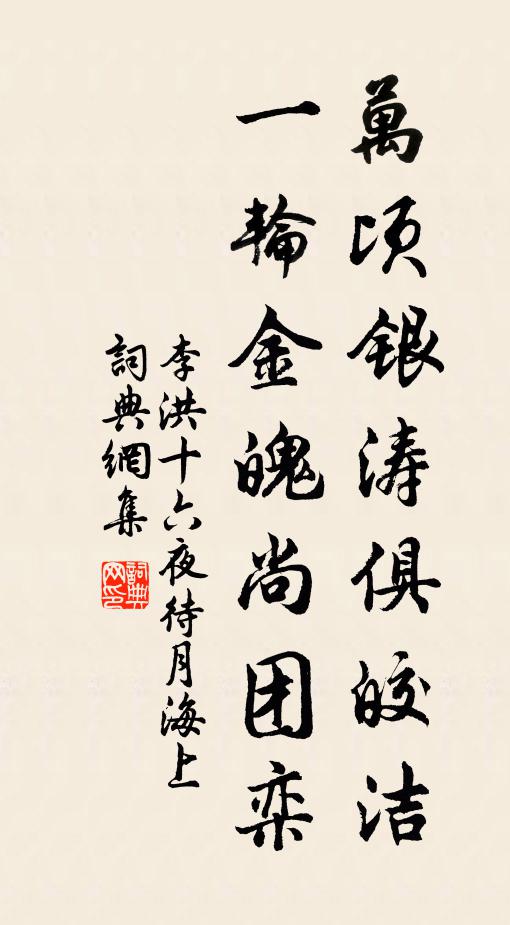 萬頃銀涛俱皎洁
一輪金魄尚团栾
李洪十六夜待月海上
詞典網集
詞典网印